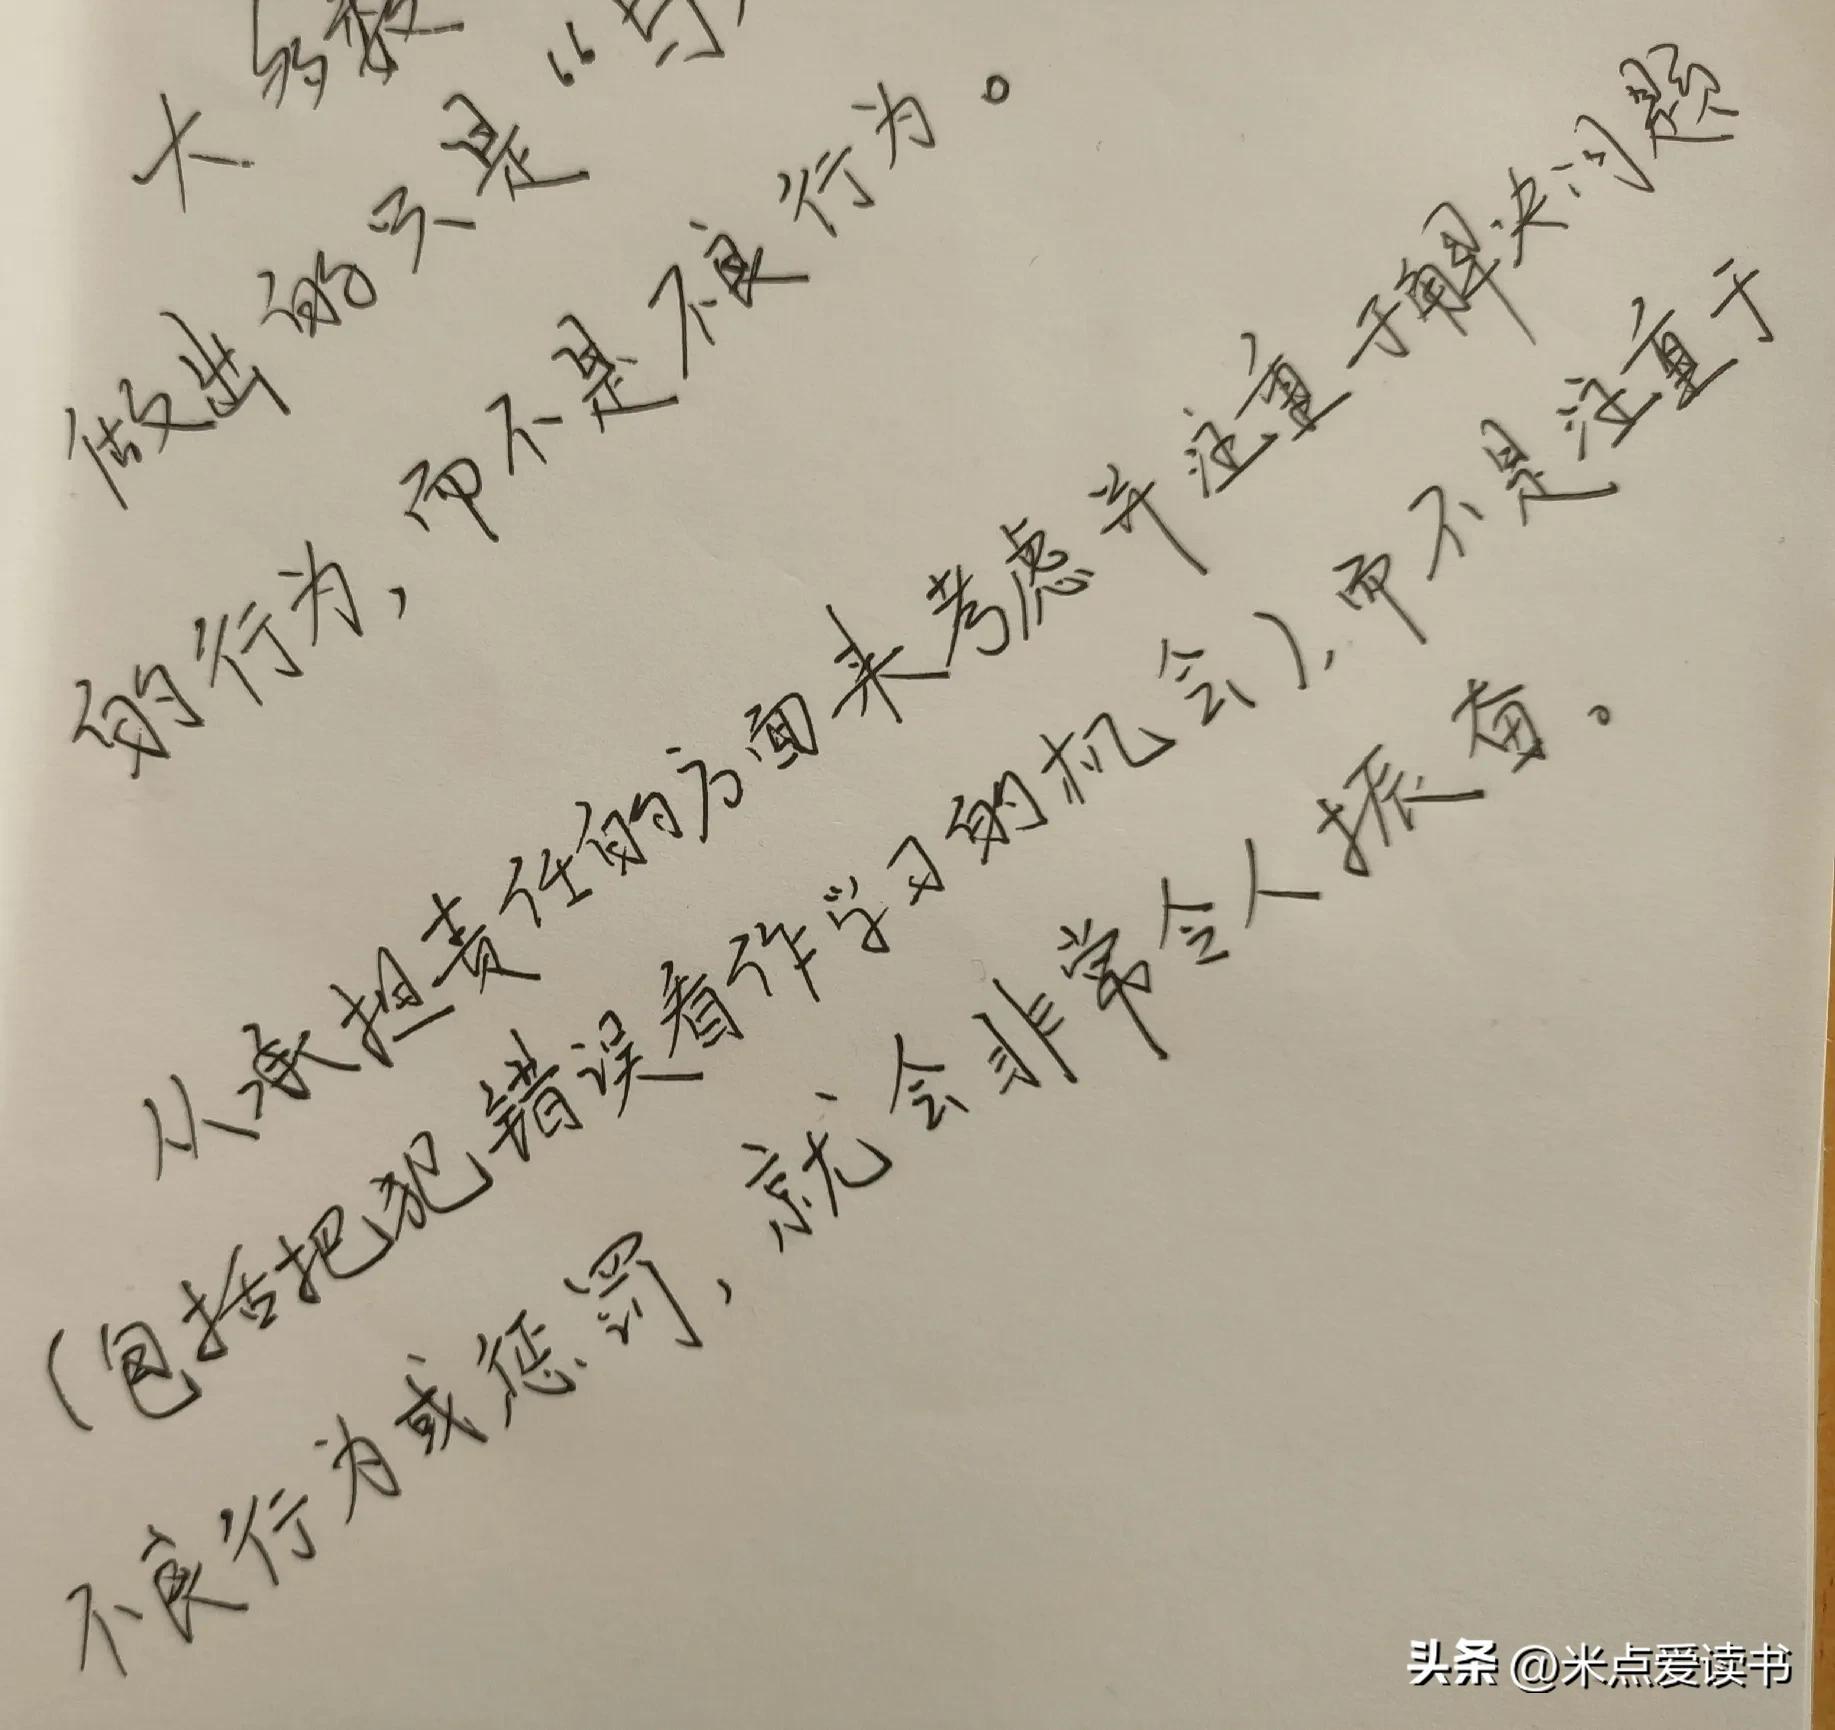 大多数
做出的只是“与
的行为，而不是不良行为。
从承担责任的方面来考虑并注重于解决问题
（包括把犯错误看作学习的机会），而不是注重于
不良行为或惩罚，就会非常令人振奋。
头条 @米点爱读书